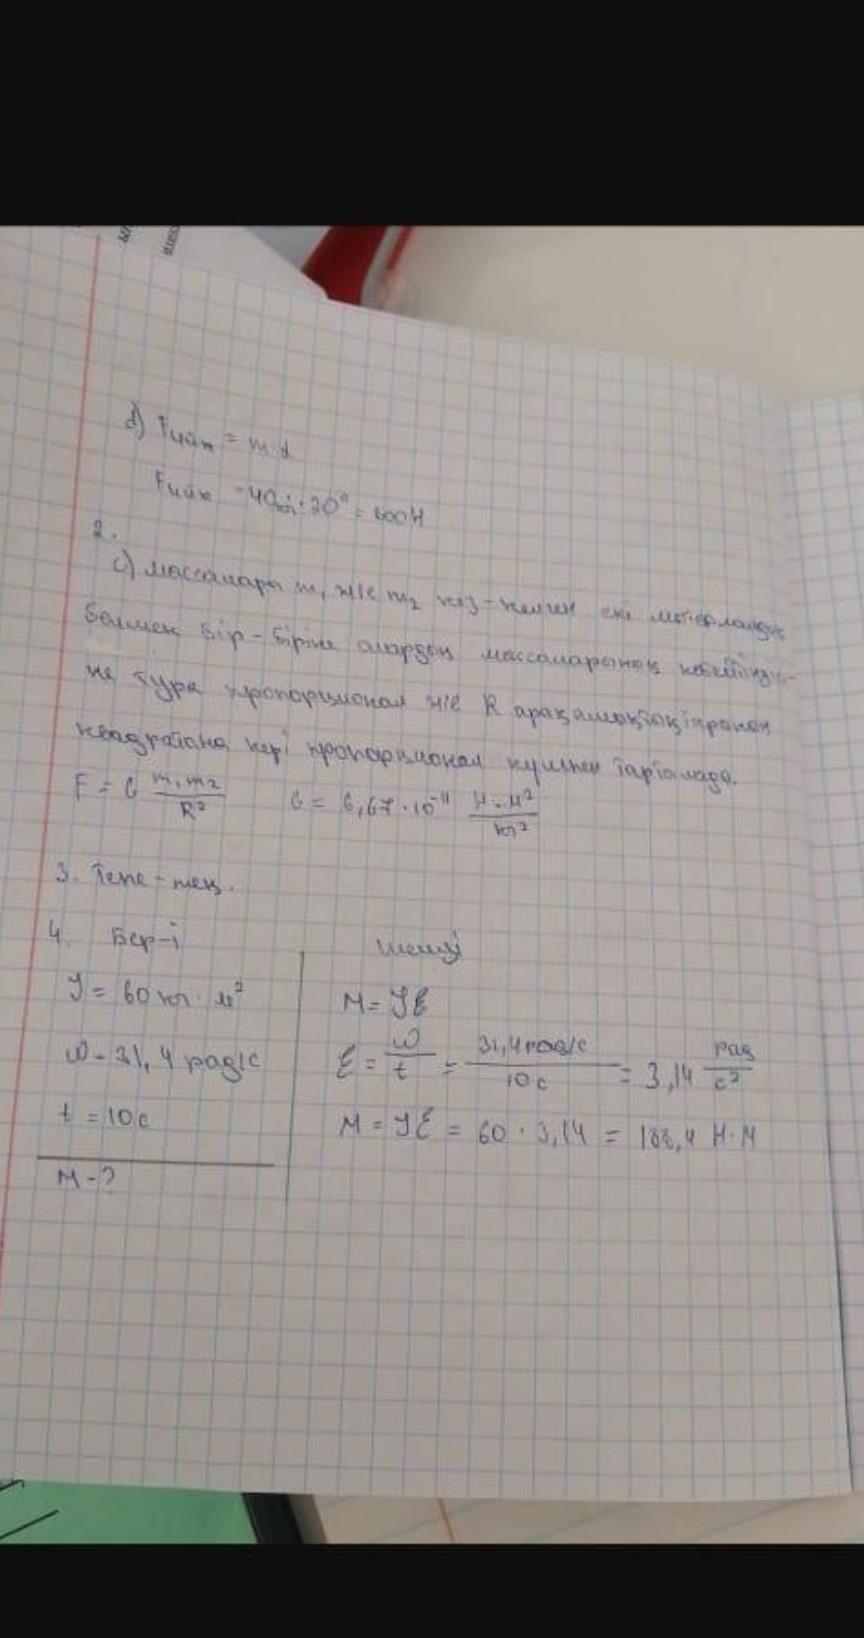 d) Fүйк = m d
Fүйк = 40 · 20° = 800Н
2.
с) массалары m₁ ж/е m₂ кез-келген екі материалдық
бөлшек бір-біріне олардың массаларының көбейтінді-
не тура пропорционал ж/е R арақашықтықтарының
квадратына кері пропорционал күшпен тартылады.
F = G m₁m₂/R² G = 6,67·10⁻¹¹ Н·м²/кг²
3. Тепе-тең.
4. Бер-і Шешуі
J = 60 кг·м² M = Jℇ
ω = 31,4 рад/с ℇ = ω/t = 31,4рад/с / 10с = 3,14 рад/с²
t = 10с M = Jℇ = 60 · 3,14 = 188,4 Н·М
M-?